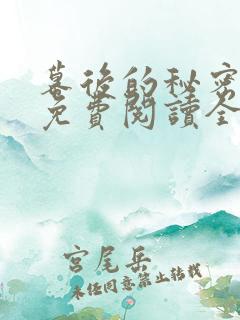 幕後的秘密
免費閱讀全
宮尾岳
未经同意禁止转载